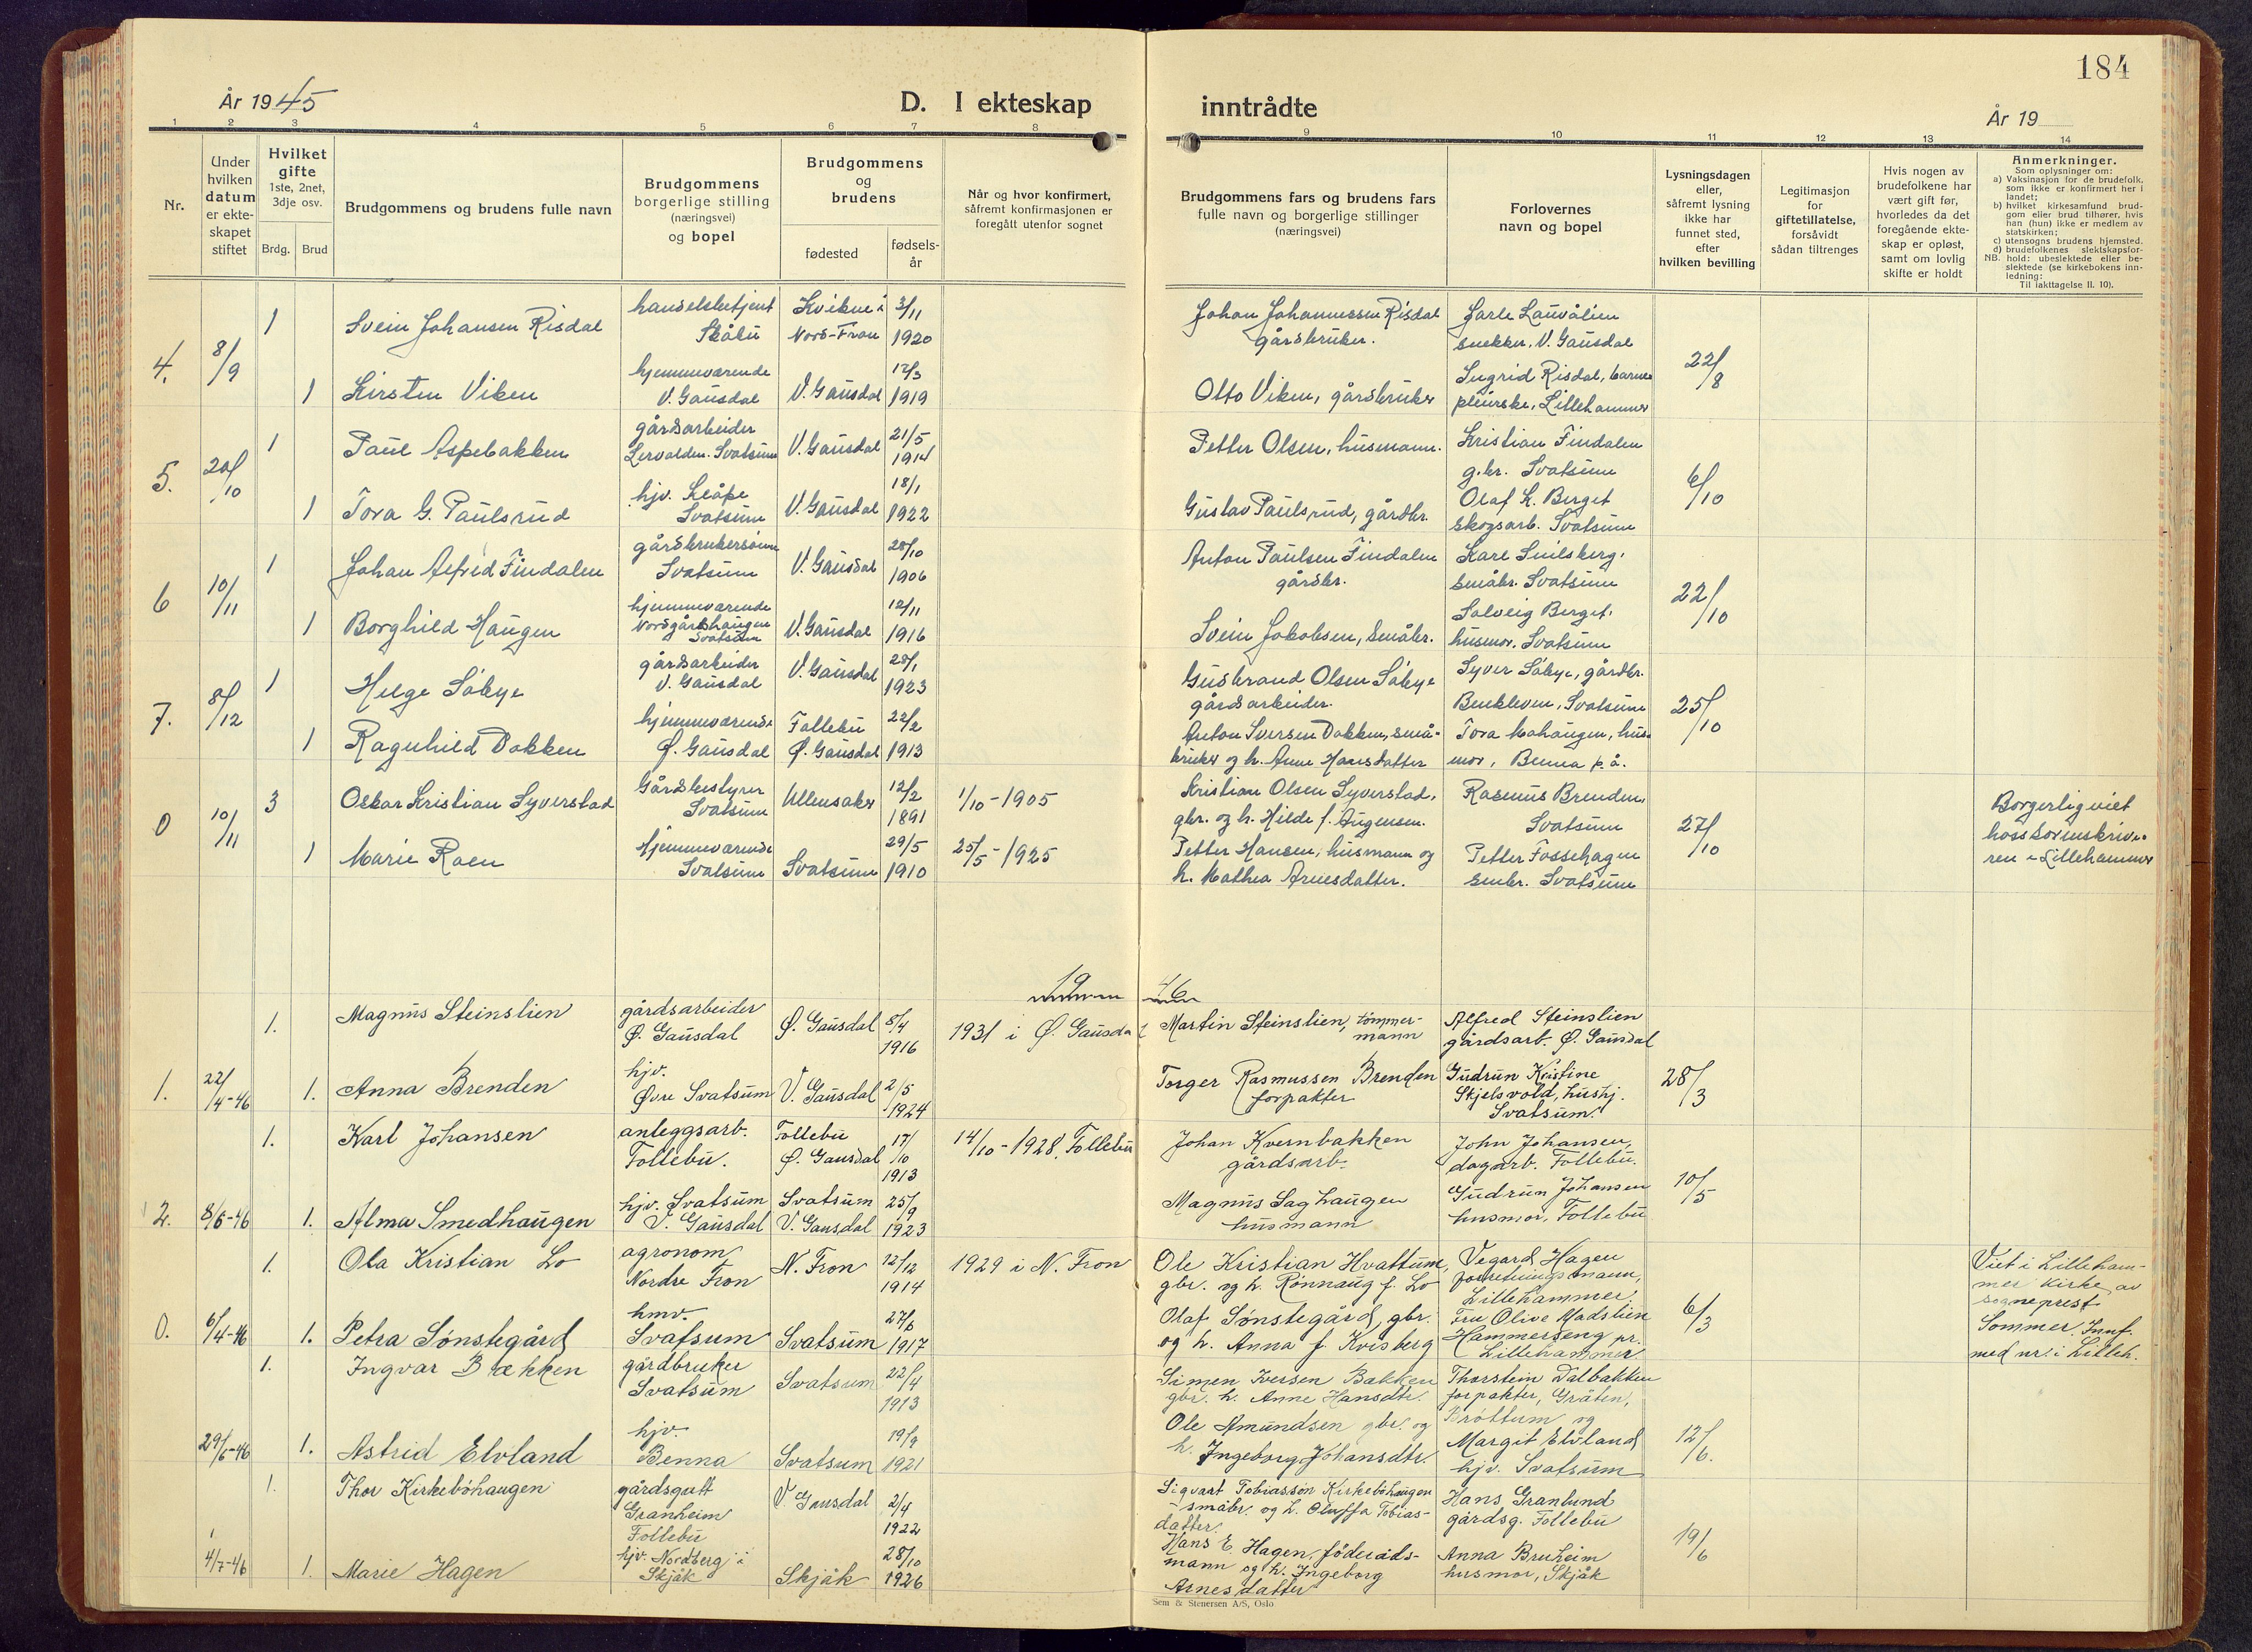 184
År 1945
D. I ekteskap
inntrådte
År 19
1 2 3 4 5 6 7 8 9 10 11 12 13 14
Nr.
Under
hvilken
datum
er ekte-
skapet
stiftet
Hvilket
gifte
1ste, 2net,
3dje osv.
Brdg. Brud
Brudgommens og brudens fulle navn
Brudgommens
borgerlige stilling
(næringsvei)
og bopel
Brudgommens
og
brudens
fødested
fødsels-
år
Når og hvor konfirmert,
såfremt konfirmasjonen er
foregått utenfor sognet
Brudgommens fars og brudens fars
fulle navn og borgerlige stillinger
(næringsvei)
Forlovernes
navn og bopel
Lysningsdagen
eller,
såfremt lysning
ikke har
funnet sted,
efter
hvilken bevilling
Legitimasjon
for
giftetillatelse,
forsåvidt
sådan tiltrenges
Hvis nogen av
brudefolkene har
vært gift før,
hvorledes da det
foregående ekte-
skap er opløst,
samt om lovlig
skifte er holdt
Anmerkninger.
Som oplysninger om:
a) Vaksinasjon for de brudefolk,
som ikke er konfirmert her i
landet;
b) hvilket kirkesamfund brud-
gom eller brud tilhører, hvis
han (hun) ikke er medlem av
statskirken;
c) utensogns brudens hjemsted.
d) brudefolkenes slektskapsfor-
NB. hold: ubeslektede eller be-
slektede (se kirkebokens inn-
ledning:
Til iakttagelse II. 10).
4. 8/9
1 Svein Johansen Risdal
handelsbetjent
Skåbu
Kvikne i
Nord-Fron
3/11
1920
Johan Johannessen Risdal
gårdbruker.
Jarle Lauvålien
snekker, V. Gausdal
22/8
1 Kirsten Viken
hjemmeværende
V. Gausdal
V. Gausdal
12/3
1919
Otto Viken, gårdbruker
Ingrid Risdal, barne-
pleierske, Lillehammer
5. 20/10
1 Paul Aspebakken
gårdsarbeider
Svatsum
V. Gausdal
21/5
1914
Petter Olsen, husmann.
Kristian Findalen
g.br. Svatsum
6/10
1 Tora G. Paulsrud
hjv. Kleåpe
Svatsum
V. Gausdal
18/1
1922
Gustav Paulsrud, gårdbr.
Olaf K. Berget
skogsarb. Svatsum
6 10/11
1 Johan Alfred Findalen
gårdbrukersønn
Svatsum
V. Gausdal
28/10
1906
Anton Paulsen Findalen
gårdbr.
Karl Snilsberg,
småbr. Svatsum
22/10
1 Borghild Haugen
hjemmeværende
Nordgårdshaugen
Svatsum
V. Gausdal
12/11
1916
Svein Jakobsen, småbr.
Solveig Berget,
husmor. Svatsum
7. 8/12
1 Helge Såbye
gårdsarbeider
V. Gausdal
V. Gausdal
28/1
1923
Gudbrand Olsen Såbye
gårdsarbeider.
Syver Såbye, gårdbr.
Benkleven, Svatsum
25/10
1 Ragnhild Dokken
hjemmeværende
Ø. Gausdal
Follebu
Ø. Gausdal
22/2
1913
Anton Iversen Dokken, små-
bruker og h. Anne Hansdatter
Tora Mohaugen, hus-
mor, Benna p.å.
0 10/11
3 Oskar Kristian Syverstad
Gårdbestyrer
Svatsum
Ullensaker
12/2
1891
1/10-1905
Kristian Olsen Syverstad,
gbr. og h. Hilde f. Augensen.
Rasmus Brenden,
Svatsum
27/10
Borgerlig viet
hos sorenskrive-
ren i Lillehammer
1 Marie Roen
hjemmeværende
Svatsum
Svatsum
29/5
1910
25/5-1925
Petter Hansen, husmann og
h. Mathea Arnesdatter.
Petter Fossehagen
småbr. Svatsum
1946
1. Magnus Steinslien
gårdsarbeider
Ø. Gausdal
Ø. Gausdal
8/4
1916
1931 i Ø. Gausdal
Martin Steinslien, tømmer-
mann
Alfred Steinslien
gårdsarb. Ø. Gausdal
1. 22/4-46
1. Anna Brenden
hjv.
Øvre Svatsum
V. Gausdal
2/5
1924
Torger Rasmussen Brenden
forpakter
Gudrun Kristine
Skjelsvold, hushj.
Svatsum.
28/3
1. Karl Johansen
anleggsarb.
Follebu.
Follebu
Ø. Gausdal
17/10
1913
14/10-1928, Follebu
Johan Kvernbakken
gårdsarb.
John Johansen,
dagarb. Follebu.
2. 8/6-46
1. Alma Smedhaugen
hjv. Svatsum
V. Gausdal
Svatsum
V. Gausdal
25/9
1923
Magnus Saghaugen
husmann
Gudrun Johansen
husmor, Follebu
10/5
1. Ola Kristian Lo
agronom
Nordre Fron
N. Fron
12/12
1914
1929 i N. Fron
Ole Kristian Hvattum,
gbr. og h. Rønnaug f. Lo
Vegard Hagen
forretningsmann,
Lillehammer.
Viet i Lilleham-
mer kirke av
sogneprest
Sommer. Innf.
med nr. i Lilleh.
0. 6/4-46
1. Petra Sønstegård
hmv.
Svatsum
Svatsum
27/6
1917
Olaf Sønstegård, gbr.
og h. Anna f. Kvisberg
Fru Olive Madslien
Hammerseng pr.
Lillehammer.
6/3
1. Ingvar Bækken
gårdbruker
Svatsum
Svatsum
22/4
1913
Simen Iversen Bækken
gbr. h. Anne Hansdtr.
Thorstein Dalbakken
forpakter, Gråten,
Brøttum og
29/6-46
1. Astrid Elvland
hjv.
Benna
Svatsum
19/9
1921
Ole Amundsen gbr. og
h. Ingeborg Johansdtr.
Margit Elvland
hjv. Svatsum
12/6.
1. Thor Kirkebøhaugen
gårdsgutt
Granheim
Follebu
V. Gausdal
2/4
1922
Sigvart Tobiasson Kirkebøhaugen
småbr. og h. Oluffa Tobias-
datter.
Hans Granlund
gårdsg. Follebu
4/7-46
1. Marie Hagen
hjv. Nordberg i
Skjåk
Skjåk
28/10
1926
Hans E. Hagen, føderåds-
mann og h. Ingeborg
Arnesdatter
Anna Bruheim
husmor, Skjåk
19/6
Sem & Stenersen A/S, Oslo